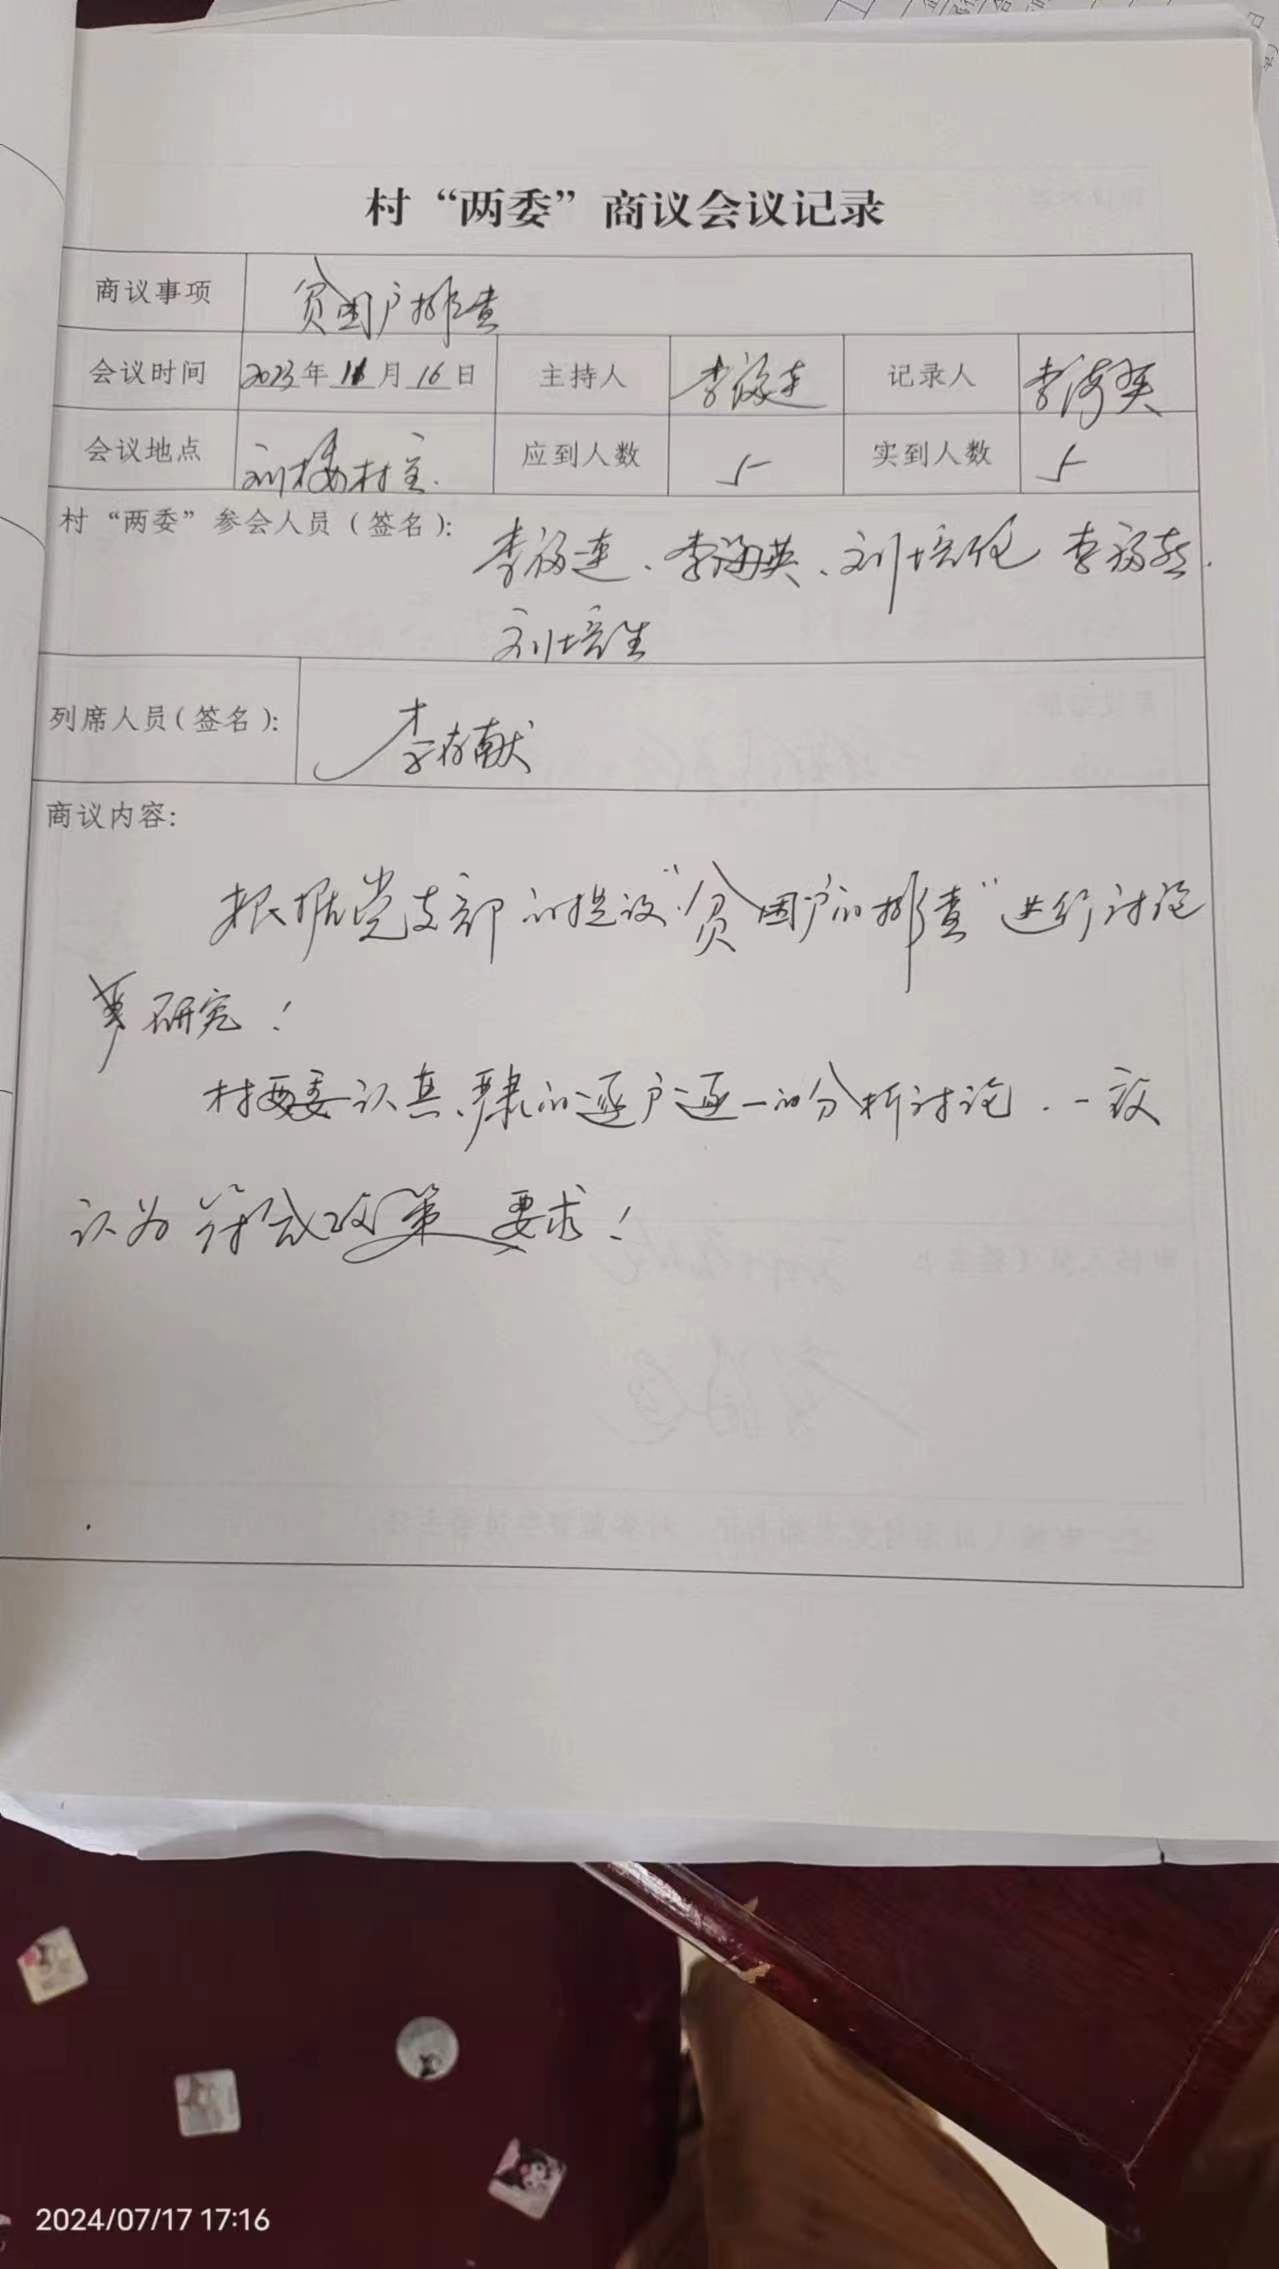 村“两委”商议会议记录
商议事项 贫困户排查
会议时间 2023年11月16日 主持人 李福连 记录人 李海英
会议地点 刘楼村室. 应到人数 5 实到人数 5
村“两委”参会人员（签名）: 李福连、李海英、刘培任 李福
刘培生
列席人员（签名）: 李存献
商议内容:
根据党支部的提议“贫困户的排查”进行讨论
研究！
村两委认真、严肃的逐户逐一的分析讨论.一致
认为符合政策要求！
2024/07/17 17:16